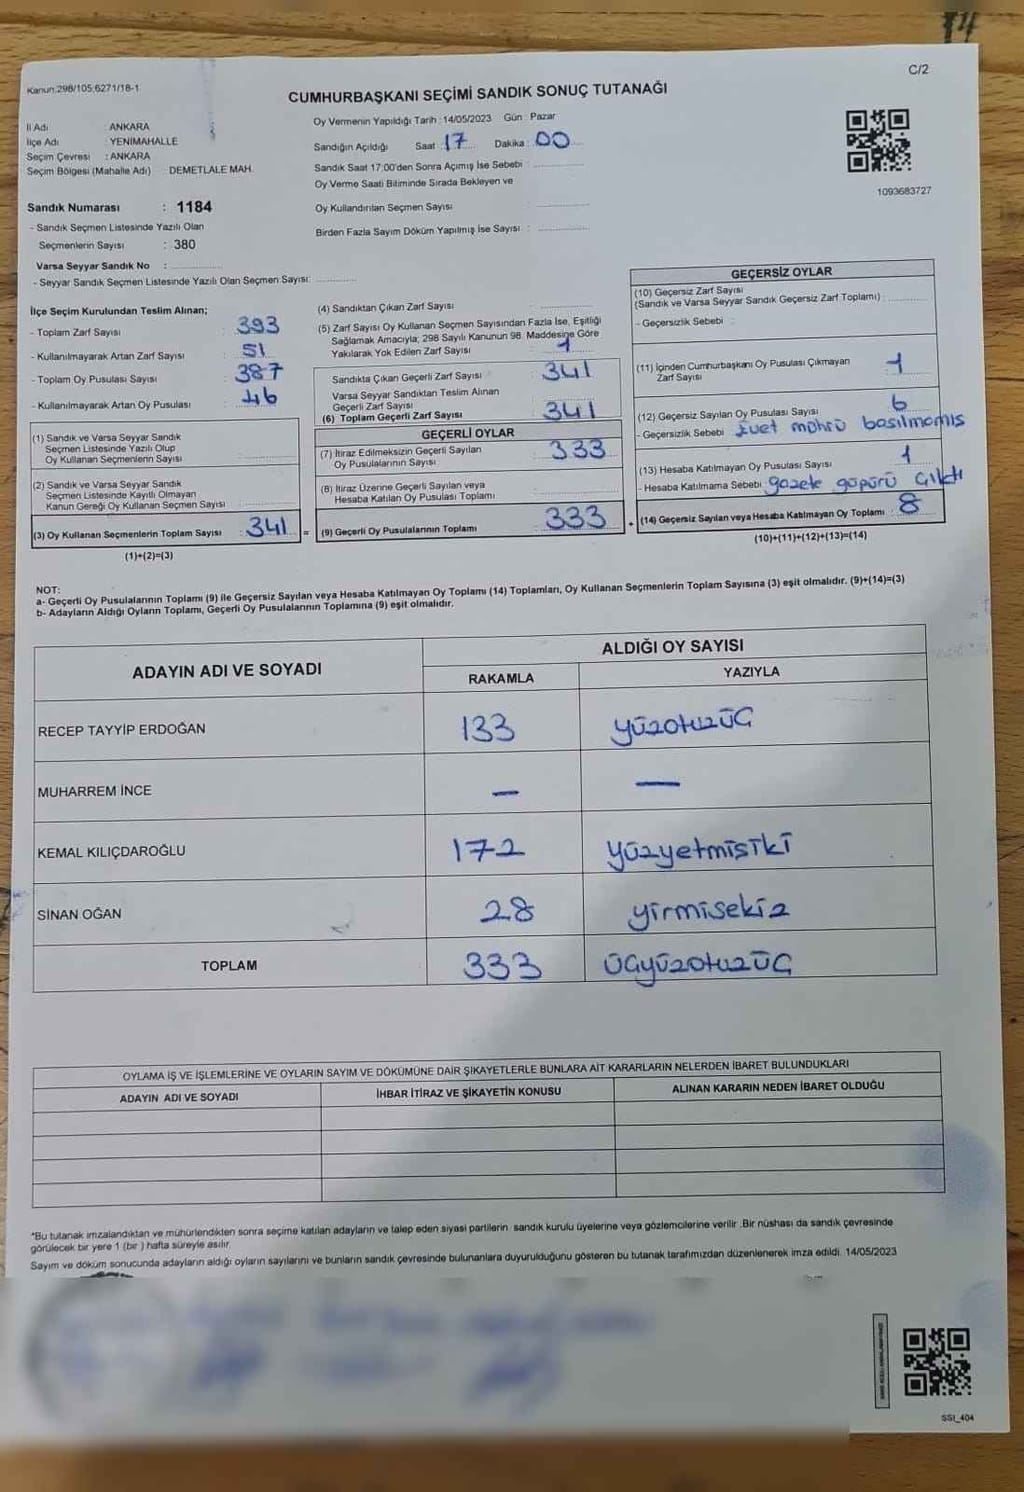 C/2
Kanun:298/105;6271/18-1
CUMHURBAŞKANI SEÇİMİ SANDIK SONUÇ TUTANAĞI
Oy Vermenin Yapıldığı Tarih : 14/05/2023 Gün : Pazar
İl Adı : ANKARA
İlçe Adı : YENİMAHALLE
Seçim Çevresi : ANKARA
Seçim Bölgesi (Mahalle Adı) DEMETLALE MAH.
Sandığın Açıldığı Saat : 17 Dakika : 00
Sandık Saat 17:00'den Sonra Açımış İse Sebebi :
Oy Verme Saati Bitiminde Sırada Bekleyen ve
Oy Kullandırılan Seçmen Sayısı
Birden Fazla Sayım Döküm Yapılmış İse Sayısı :
1093683727
Sandık Numarası : 1184
- Sandık Seçmen Listesinde Yazılı Olan
Seçmenlerin Sayısı : 380
Varsa Seyyar Sandık No :
- Seyyar Sandık Seçmen Listesinde Yazılı Olan Seçmen Sayısı:
İlçe Seçim Kurulundan Teslim Alınan;
- Toplam Zarf Sayısı : 393
- Kullanılmayarak Artan Zarf Sayısı : 51
- Toplam Oy Pusulası Sayısı : 387
- Kullanılmayarak Artan Oy Pusulası : 46
(1) Sandık ve Varsa Seyyar Sandık
Seçmen Listesinde Yazılı Olup
Oy Kullanan Seçmenlerin Sayısı
(2) Sandık ve Varsa Seyyar Sandık
Seçmen Listesinde Kayıtlı Olmayan
Kanun Gereği Oy Kullanan Seçmen Sayısı
(3) Oy Kullanan Seçmenlerin Toplam Sayısı : 341 =
(1)+(2)=(3)
(4) Sandıktan Çıkan Zarf Sayısı :
(5) Zarf Sayısı Oy Kullanan Seçmen Sayısından Fazla İse, Eşitliği
Sağlamak Amacıyla; 298 Sayılı Kanunun 98. Maddesine Göre
Yakılarak Yok Edilen Zarf Sayısı 1
Sandıkta Çıkan Geçerli Zarf Sayısı : 341
Varsa Seyyar Sandıktan Teslim Alınan
Geçerli Zarf Sayısı
(6) Toplam Geçerli Zarf Sayısı : 341
GEÇERLİ OYLAR
(7) İtiraz Edilmeksizin Geçerli Sayılan
Oy Pusulalarının Sayısı 333
(8) İtiraz Üzerine Geçerli Sayılan veya
Hesaba Katılan Oy Pusulası Toplamı
(9) Geçerli Oy Pusulalarının Toplamı : 333 +
GEÇERSİZ OYLAR
(10) Geçersiz Zarf Sayısı
(Sandık ve Varsa Seyyar Sandık Geçersiz Zarf Toplamı) :
- Geçersizlik Sebebi :
(11) İçinden Cumhurbaşkanı Oy Pusulası Çıkmayan
Zarf Sayısı 1
(12) Geçersiz Sayılan Oy Pusulası Sayısı 6
- Geçersizlik Sebebi Evet mührü basılmamış
(13) Hesaba Katılmayan Oy Pusulası Sayısı 1
- Hesaba Katılmama Sebebi gazete güpürü çıktı
(14) Geçersiz Sayılan veya Hesaba Katılmayan Oy Toplamı : 8
(10)+(11)+(12)+(13)=(14)
NOT:
a- Geçerli Oy Pusulalarının Toplamı (9) ile Geçersiz Sayılan veya Hesaba Katılmayan Oy Toplamı (14) Toplamları, Oy Kullanan Seçmenlerin Toplam Sayısına (3) eşit olmalıdır. (9)+(14)=(3)
b- Adayların Aldığı Oyların Toplamı, Geçerli Oy Pusulalarının Toplamına (9) eşit olmalıdır.
ADAYIN ADI VE SOYADI
ALDIĞI OY SAYISI
RAKAMLA YAZIYLA
RECEP TAYYİP ERDOĞAN 133 yüzotuzüç
MUHARREM İNCE — —
KEMAL KILIÇDAROĞLU 172 yüzyetmişiki
SİNAN OĞAN 28 yirmisekiz
TOPLAM 333 üçyüzotuzüç
OYLAMA İŞ VE İŞLEMLERİNE VE OYLARIN SAYIM VE DÖKÜMÜNE DAİR ŞİKAYETLERLE BUNLARA AİT KARARLARIN NELERDEN İBARET BULUNDUKLARI
ADAYIN ADI VE SOYADI İHBAR İTİRAZ VE ŞİKAYETİN KONUSU ALINAN KARARIN NEDEN İBARET OLDUĞU
*Bu tutanak imzalandıktan ve mühürlendikten sonra seçime katılan adayların ve talep eden siyasi partilerin sandık kurulu üyelerine veya gözlemcilerine verilir .Bir nüshası da sandık çevresinde
görülecek bir yere 1 (bir ) hafta süreyle asılır.
Sayım ve döküm sonucunda adayların aldığı oyların sayılarını ve bunların sandık çevresinde bulunanlara duyurulduğunu gösteren bu tutanak tarafımızdan düzenlenerek imza edildi. 14/05/2023
SSI_404